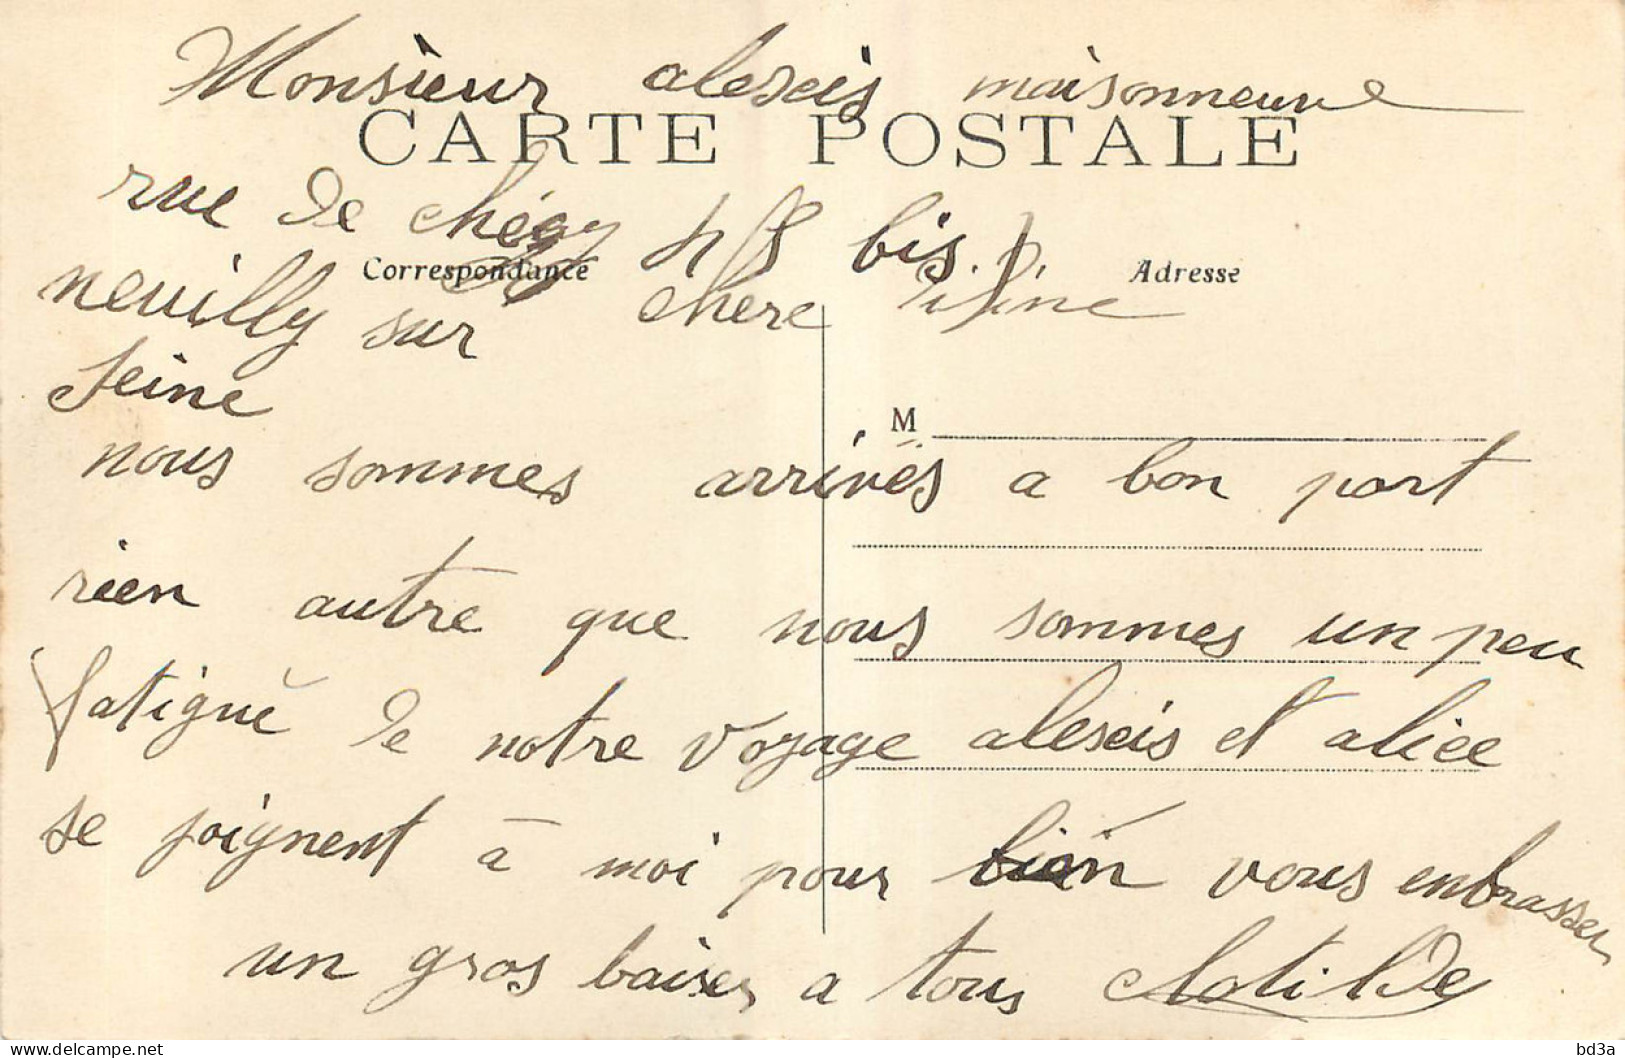 Monsieur alexcis maisonneuve
CARTE POSTALE
rue de chézy 48 bis.
Correspondance
Adresse
neuilly sur
Seine
chere
M
nous sommes arrivés a bon port
rien autre que nous sommes un peu
fatigué de notre voyage alexcis et alice
se joignent à moi pour bien vous enbrasser
un gros baiser a tous Clotilde
bd3a